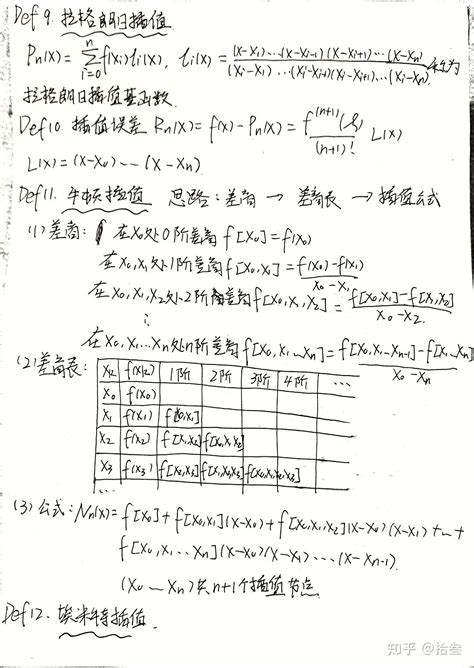 Def 9. 拉格朗日插值
Pn(x) = Σ_{i=0}^{n} f(xi)li(x), li(x) = (x-x1)…(x-xi-1)(x-xi+1)…(x-xn) / (xi-x1)…(xi-xi-1)(xi-xi+1)…(xi-xn) 称为
拉格朗日插值基函数.
Def10. 插值误差 Rn(x) = f(x) - Pn(x) = f^(n+1)(ξ) / (n+1)! L(x)
L(x) = (x-x0)…(x-xn)
Def11. 牛顿插值 思路: 差商 → 差商表 → 插值公式
(1) 差商: 在x0处0阶差商 f[x0] = f(x0)
在x0,x1处1阶差商 f[x0,x1] = f(x0)-f(x1) / x0-x1
在x0,x1,x2处2阶差商 f[x0,x1,x2] = f[x0,x1]-f[x1,x2] / x0-x2
⋮
在x0,x1…xn处n阶差商 f[x0,x1…xn] = f[x0,x1…xn-1]-f[x1…xn] / x0-xn
(2) 差商表:
xk f(xk) 1阶 2阶 3阶 4阶 …
x0 f(x0)
x1 f(x1) f[x0,x1]
x2 f(x2) f[x1,x2] f[x0,x1,x2]
x3 f(x3) f[x2,x3] f[x1,x2,x3] f[x0,x1,x2,x3]
…
(3) 公式: Nn(x) = f[x0] + f[x0,x1](x-x0) + f[x0,x1,x2](x-x0)(x-x1) + … +
f[x0,x1…xn](x-x0)(x-x1)…(x-xn-1).
(x0…xn)共n+1个插值节点
Def12. 埃米特插值.
知乎 @拾叁